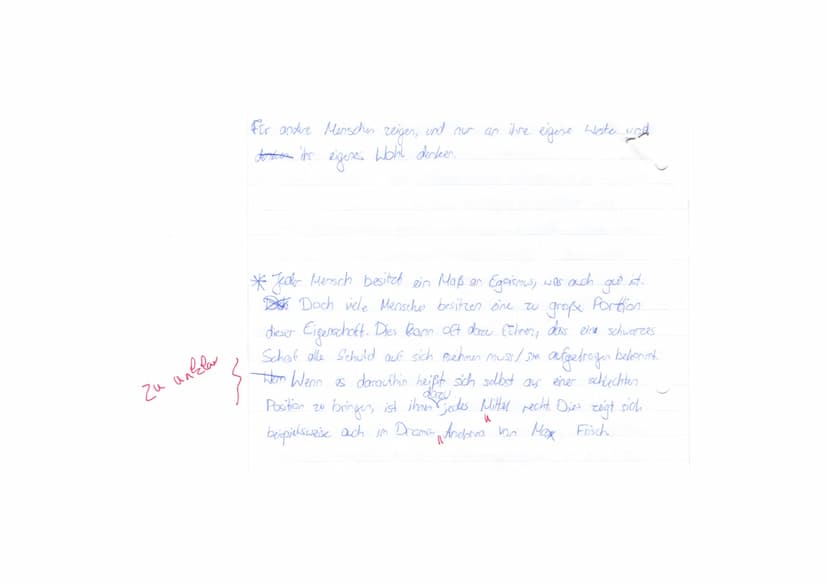 Für andere Menschen zeigen, und nur an ihre eigene Werte und
denken ihr eigenes Wohl denken.
* Jeder Mensch besitzt ein Maß an Egoismus, was auch gut ist.
Doch viele Menschen besitzen eine zu große Portion
dieser Eigenschaft. Dies kann oft dazu führen, dass ein schwarzes
Schaf alle Schuld auf sich nehmen muss/ sie aufgetragen bekommt.
zu unklar
Wenn Wenn es daraufhin heißt, sich selbst aus einer schlechten
Position zu bringen, ist ihnen dazu jedes Mittel recht. Dies zeigt sich
beispielsweise auch im Drama "Andorra" von Max Frisch